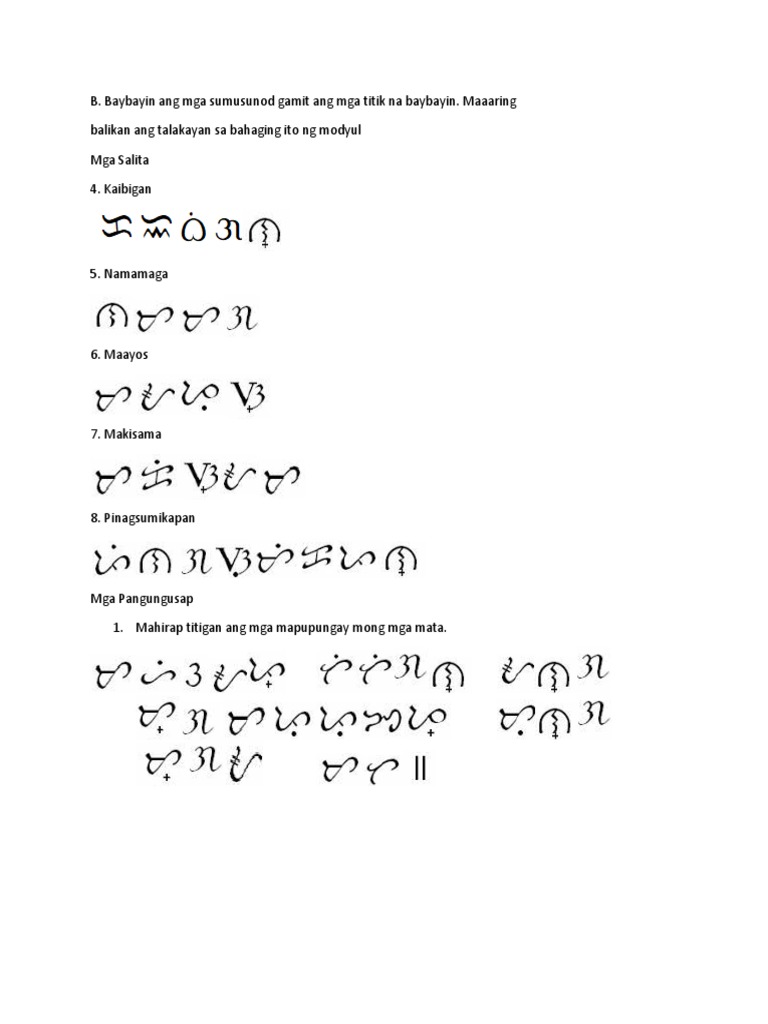 B. Baybayin ang mga sumusunod gamit ang mga titik na baybayin. Maaaring
balikan ang talakayan sa bahaging ito ng modyul
Mga Salita
4. Kaibigan
ᜃᜁᜊᜒᜄᜈ᜔
5. Namamaga
ᜈᜋᜋᜄ
6. Maayos
ᜋᜀᜌᜓᜐ᜔
7. Makisama
ᜋᜃᜒᜐ᜔ᜀᜋ
8. Pinagsumikapan
ᜉᜒᜈᜄᜐᜓᜋᜒᜃᜉᜈ᜔
Mga Pangungusap
1. Mahirap titigan ang mga mapupungay mong mga mata.
ᜋᜑᜒᜂᜀᜉ᜔ ᜆᜒᜆᜒᜄᜈ᜔ ᜀᜈ᜔ᜄ
ᜋ᜔ᜄ ᜋᜉᜓᜉᜓᜅᜌ᜔ ᜋᜓᜈ᜔ᜄ
ᜋ᜔ᜄᜀ ᜋᜆ᜶